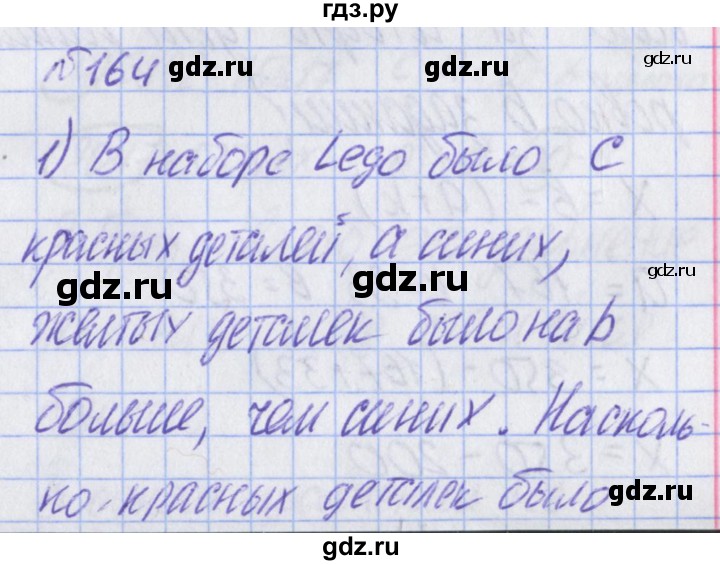 гдз.ру
№164
gdz.ru
gdz.ru
gdz.ru
1) В наборе Lego было c
красных деталей, а синих,
gdz.ru
gdz.ru
желтых деталек было на b
больше, чем синих. Насколь-
ко красных деталек было
gdz.ru
gdz.ru
gdz.ru